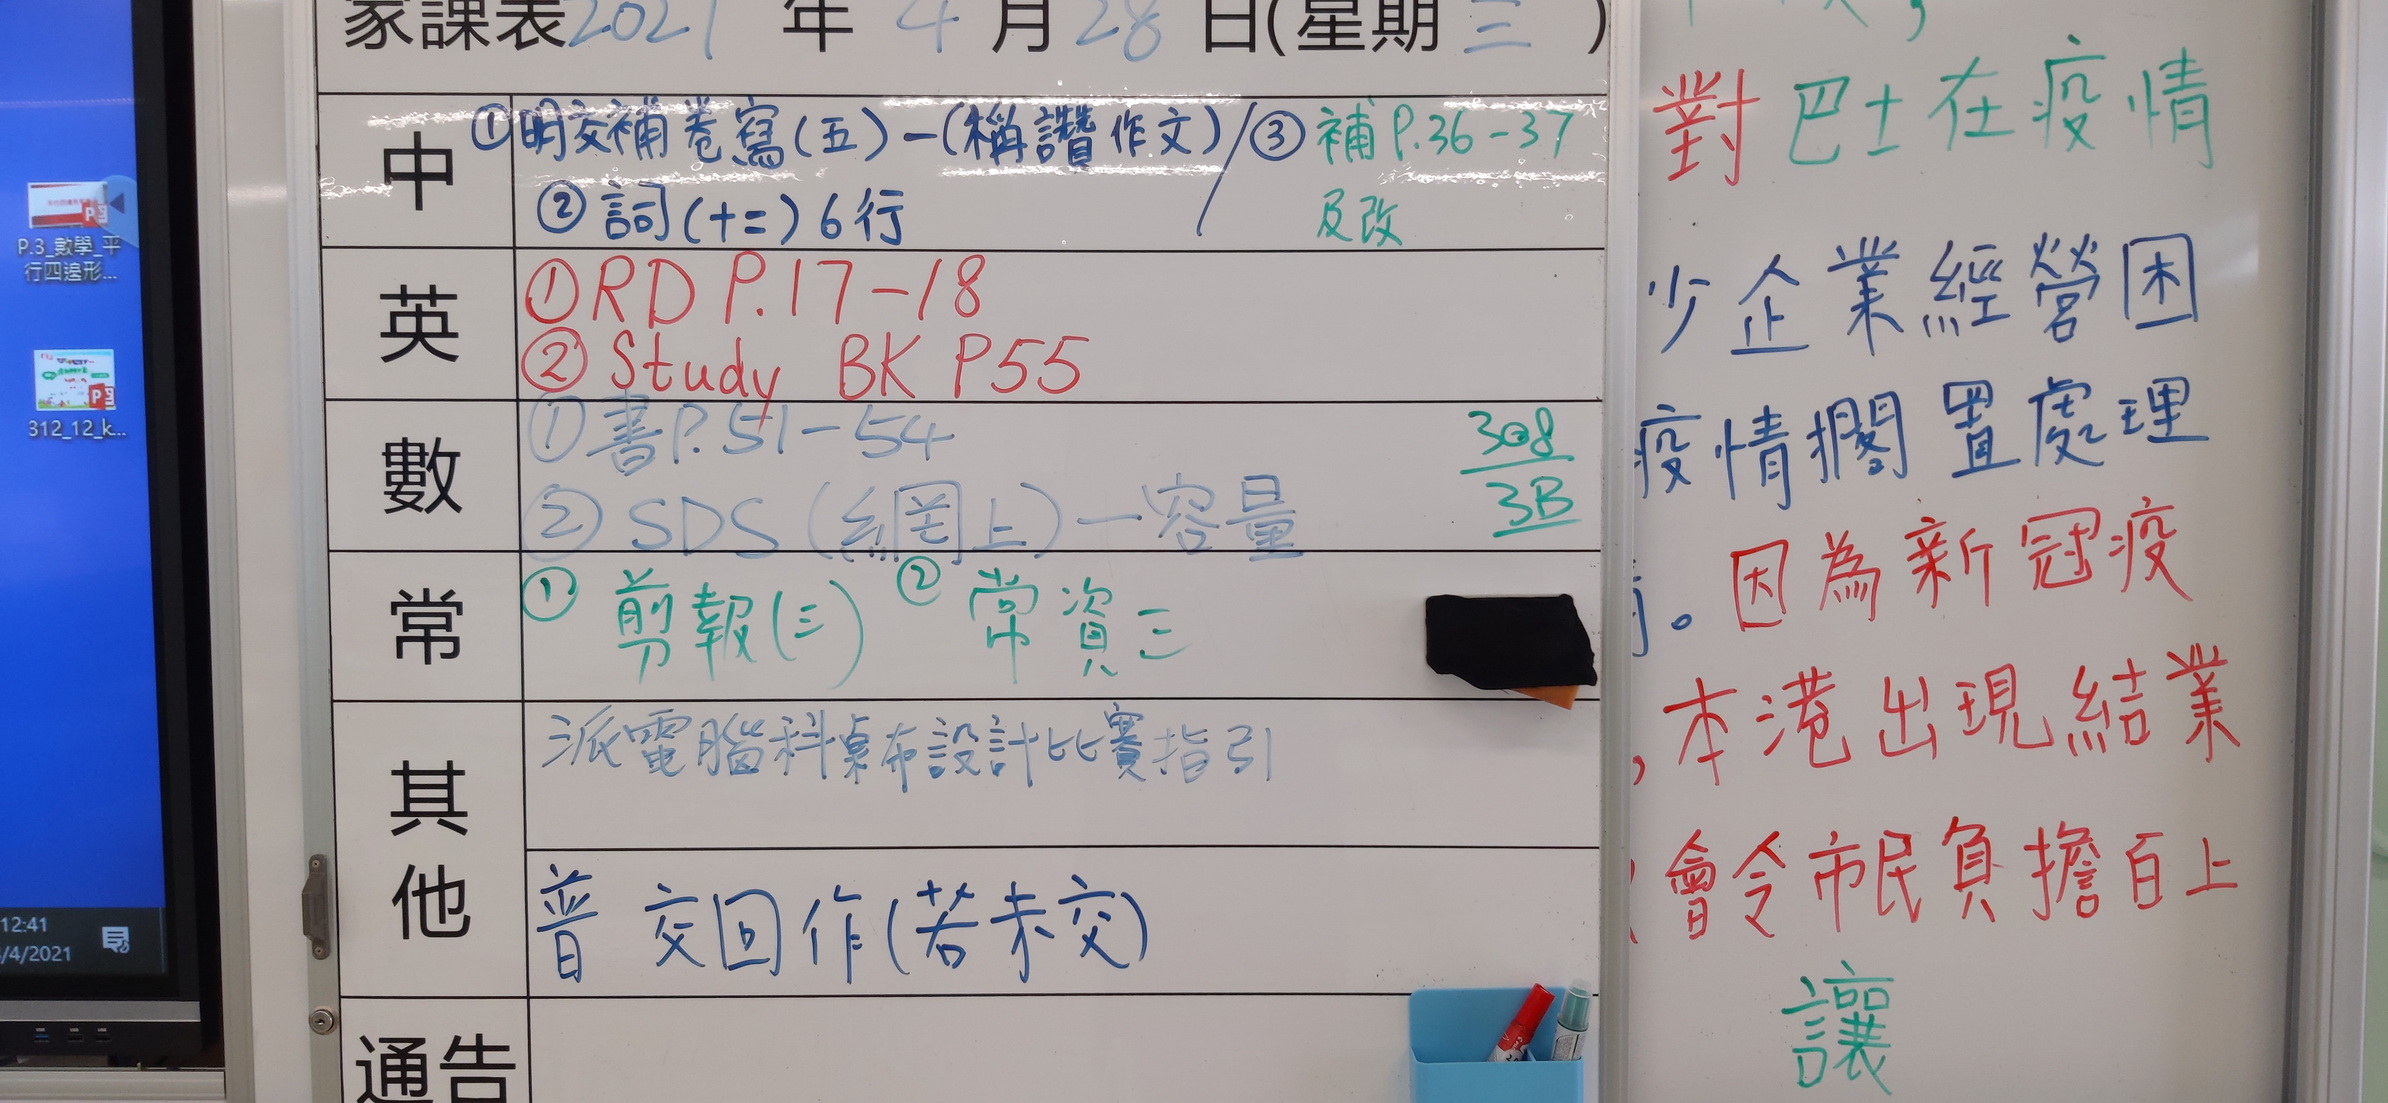 家課表2021年4月28日(星期三)
中
①明交補卷寫(五)-(稱讚作文)/③補P.36-37
及改
②詞(十二)6行
英
①RD P.17-18
②Study BK P55
數
①書P.51-54
②SDS(網上)-容量
308
3B
常
①剪報(三) ②常資三
其他
派電腦科桌布設計比賽指引
普 交回作(若未交)
通告
對巴士在疫情
少企業經營困
疫情擱置處理
。因為新冠疫
,本港出現結業
會令市民負擔百上
讓
P.3_數學_平
行四邊形...
312_12_k...
12:41
/4/2021